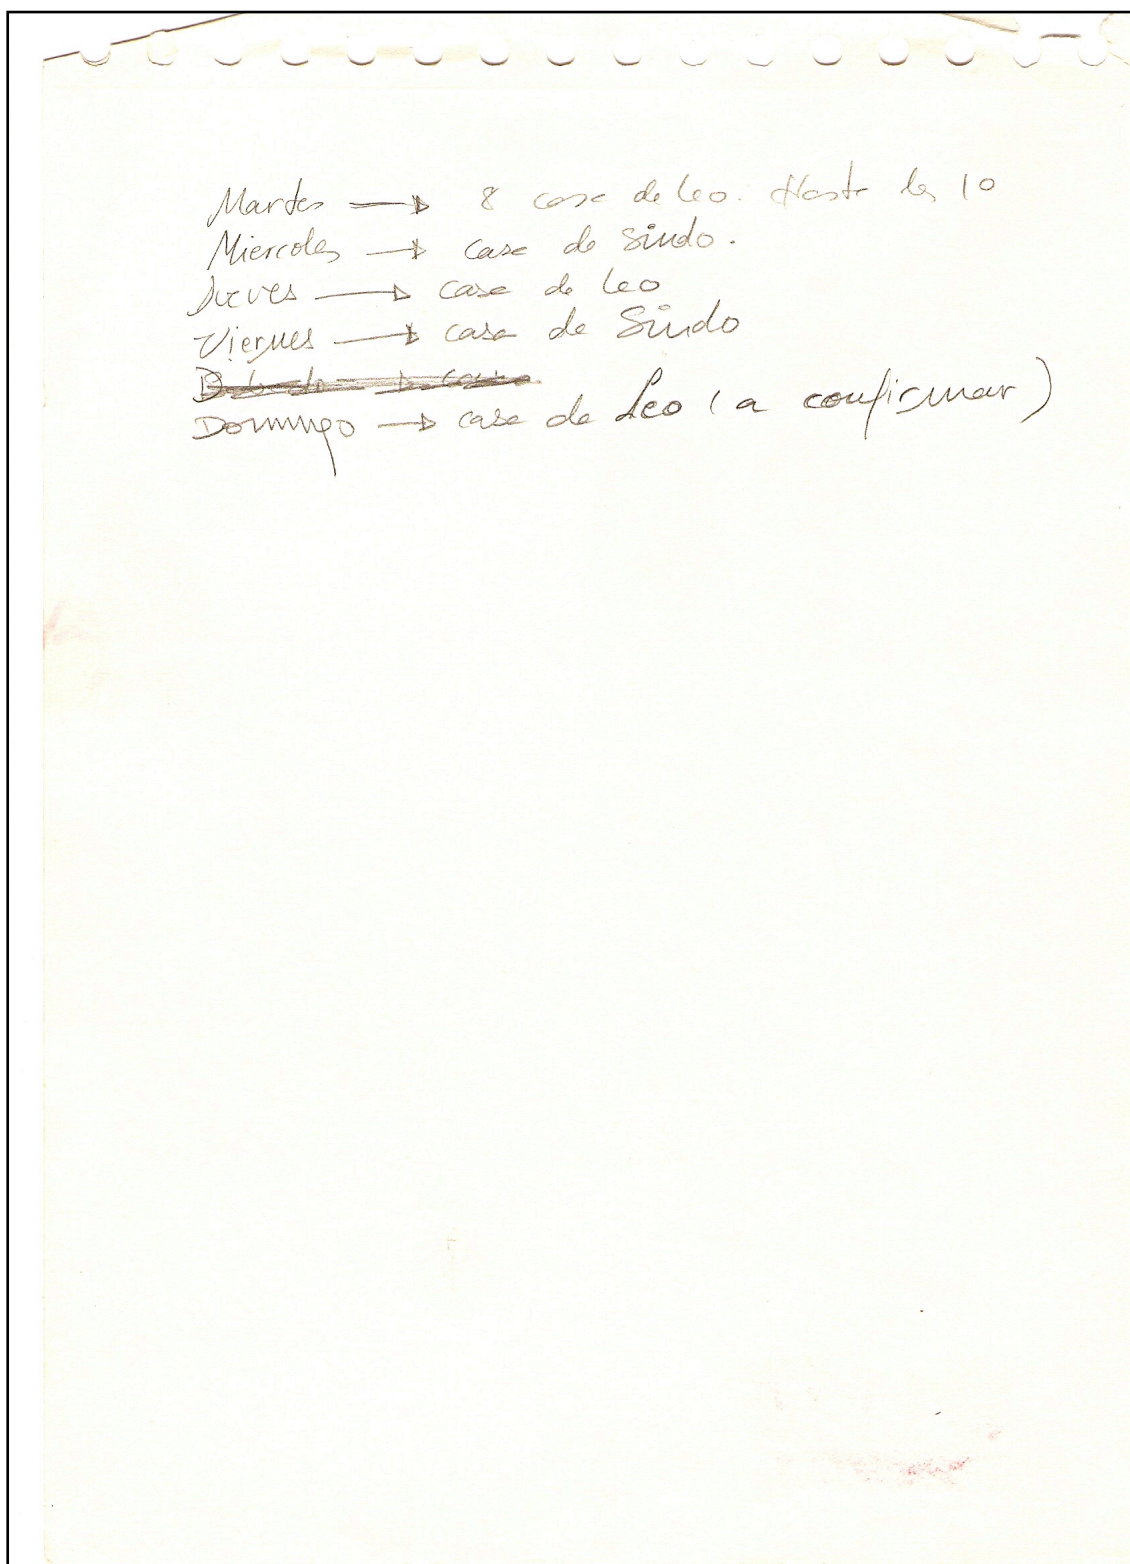 Martes → 8 casa de Leo. Hasta las 10
Miercoles → casa de Sindo.
Jueves → casa de Leo
Viernes → casa de Sindo
Domingo → casa de Leo (a confirmar)